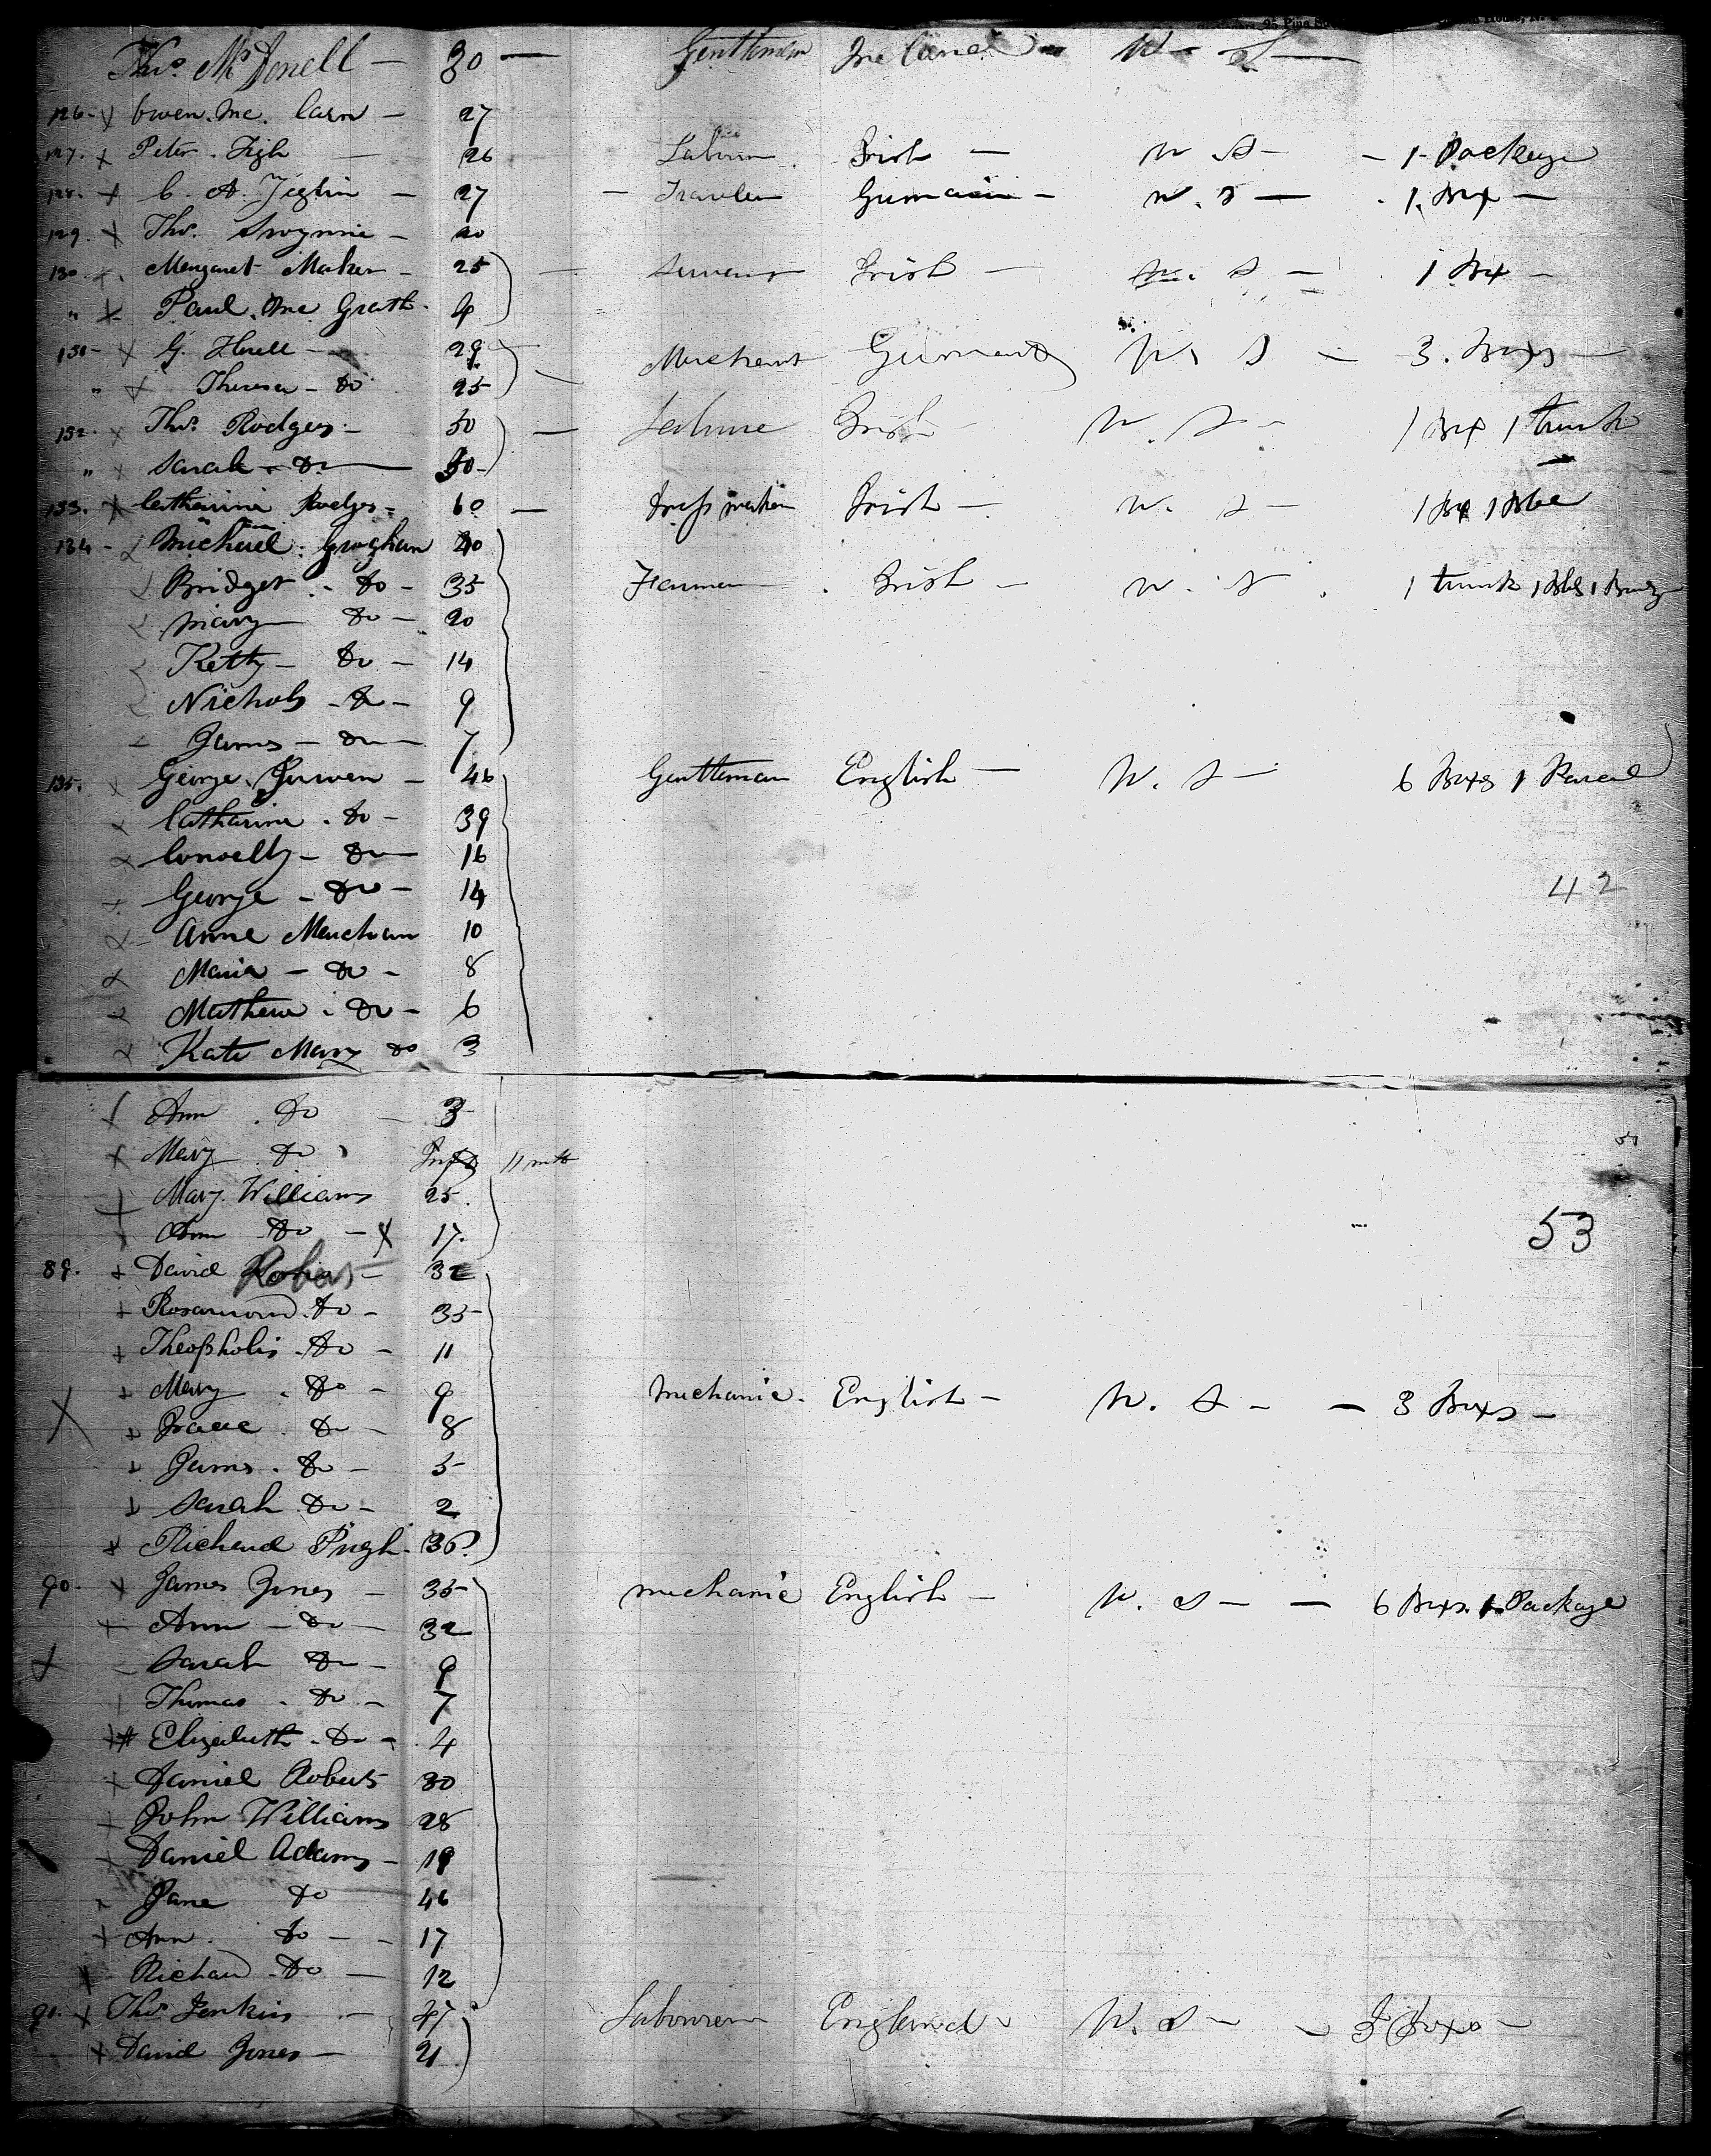 Thos. McDonell — 30 — Gentleman Ireland W S —
126 - x Owen Mc. Carn — 27
127. x Peter. Tigh — 26 Labourer. Irish — W S — 1 Package
128. x C. A. — 27 — Traveler German — W. S — 1. Box —
129. x Thos. — 20
130. x. Margaret Maher — 25 — Servant Irish — W. S — 1 Box —
" x Paul. Mc Grath. 4
131 - x G. — 29 Merchant Germany W S — 3. Boxes —
" x Theresa — do 25
132. x Thos. Rodgers — 50 — Labourer Irish — W. S — 1 Box 1 trunk
" x Sarah — do — 50
133. x Catharine Rodgers — 60 — Dress maker Irish — W. S — 1 Box 1 Bble
134 - x Michael. Groghan 40
x Bridget. - do — 35 Farmer. Irish — W. S. 1 trunk 1 Bble 1
x Mary — do — 20
Ketty — do — 14
Nichols — do — 9
James — do — 7
135. x George — 46 Gentleman English — W. S — 6 Boxes 1 Parcel
x Catharine. do — 39
x Connelly — do — 16
x George — do — 14
42
x Anne 10
x Maria — do — 8
x Mathew. do — 6
x Kate Mary do 3
x Ann. do — 3
x Mary do Inft 11 mth
x Mary Williams 25.
Ann do — x 17.
53
89. x David Robers — 32
x Rosamond. do — 35
x Theopholis. do — 11
x Mary. do — 9 Mechanic. English — W. S — — 3 Boxes —
x Isaac. do — 8
x James. do — 5
x Sarah do — 2
x Richard Pugh. 36
90. x James Jones — 35 Mechanic English — W. S — — 6 Boxes. 1 Package
x Ann — do — 32
x Sarah do — 9
Thomas. do — 7
x# Elizabeth. do — 4
x Daniel Roberts 30
x John Williams 28
x Daniel Adams — 19
x Jane do 46
x Ann. do — — 17
x Richard do — 12
91. x Thos. Jenkins — 47 Labourer England W. S — — 3 Boxes —
x David Jones — 21